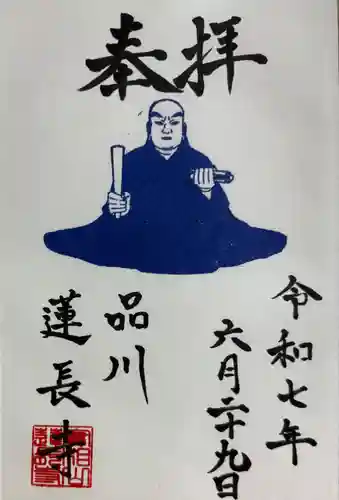 奉拝
令和七年
六月二十九日
品川
蓮長寺